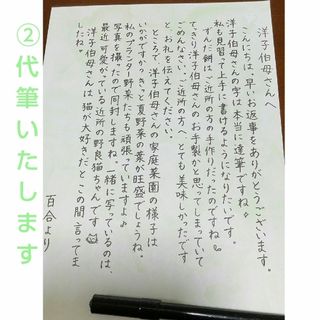 洋子伯母さんへ
こんにちは。早いお返事をありがとうございます。
洋子伯母さんの字は本当に達筆ですね。
私も見習って上手に書けるようになりたいです。
ずんだ餅は、ご近所の方の手作りだったのですね。
てっきり洋子伯母さんのお手製かと思ってしまっていて
ごめんなさい。ご近所の方へ、とても美味しかったです
とお礼を伝えてください。
ところで、洋子伯母さんの家庭菜園の様子は
いかがですか。きっと夏野菜の葉が旺盛でしょうね。
私のプランター野菜たちも頑張っていますよ♪
写真を撮ったので同封しますね。一緒に写っているのは、
最近可愛がている近所の野良猫ちゃんです
洋子伯母さんは猫が大好きだと この間言ってま
したね。
百合より
②代筆いたします